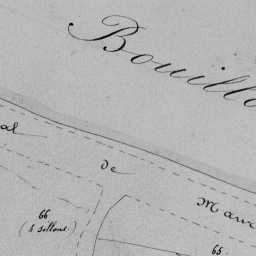 Bouillo
al
de
Mau
66
(5 sillons.)
65